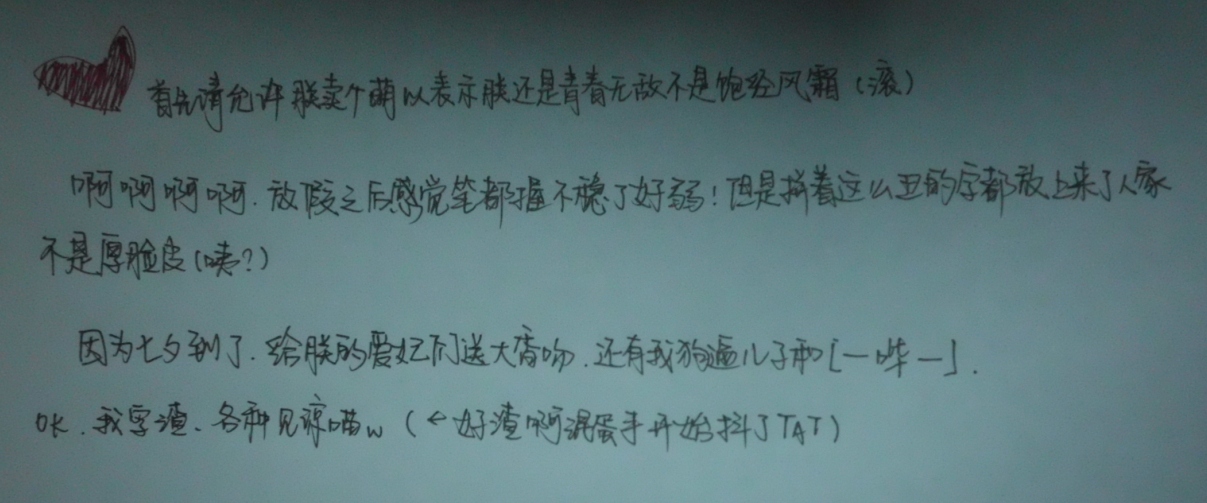 首先请允许朕卖个萌以表示朕还是青春无敌不是饱经风霜(滚)
啊啊啊啊.放假之后感觉笔都握不稳了好弱!但是拼着这么丑的字都放上来了人家
不是厚脸皮(咦?)
因为七夕到了.给朕的爱妃们送大香吻.还有我狗逼儿子和[一哔一].
OK.我字渣、各种见谅喵w(←好渣啊混蛋手开始抖了TAT)